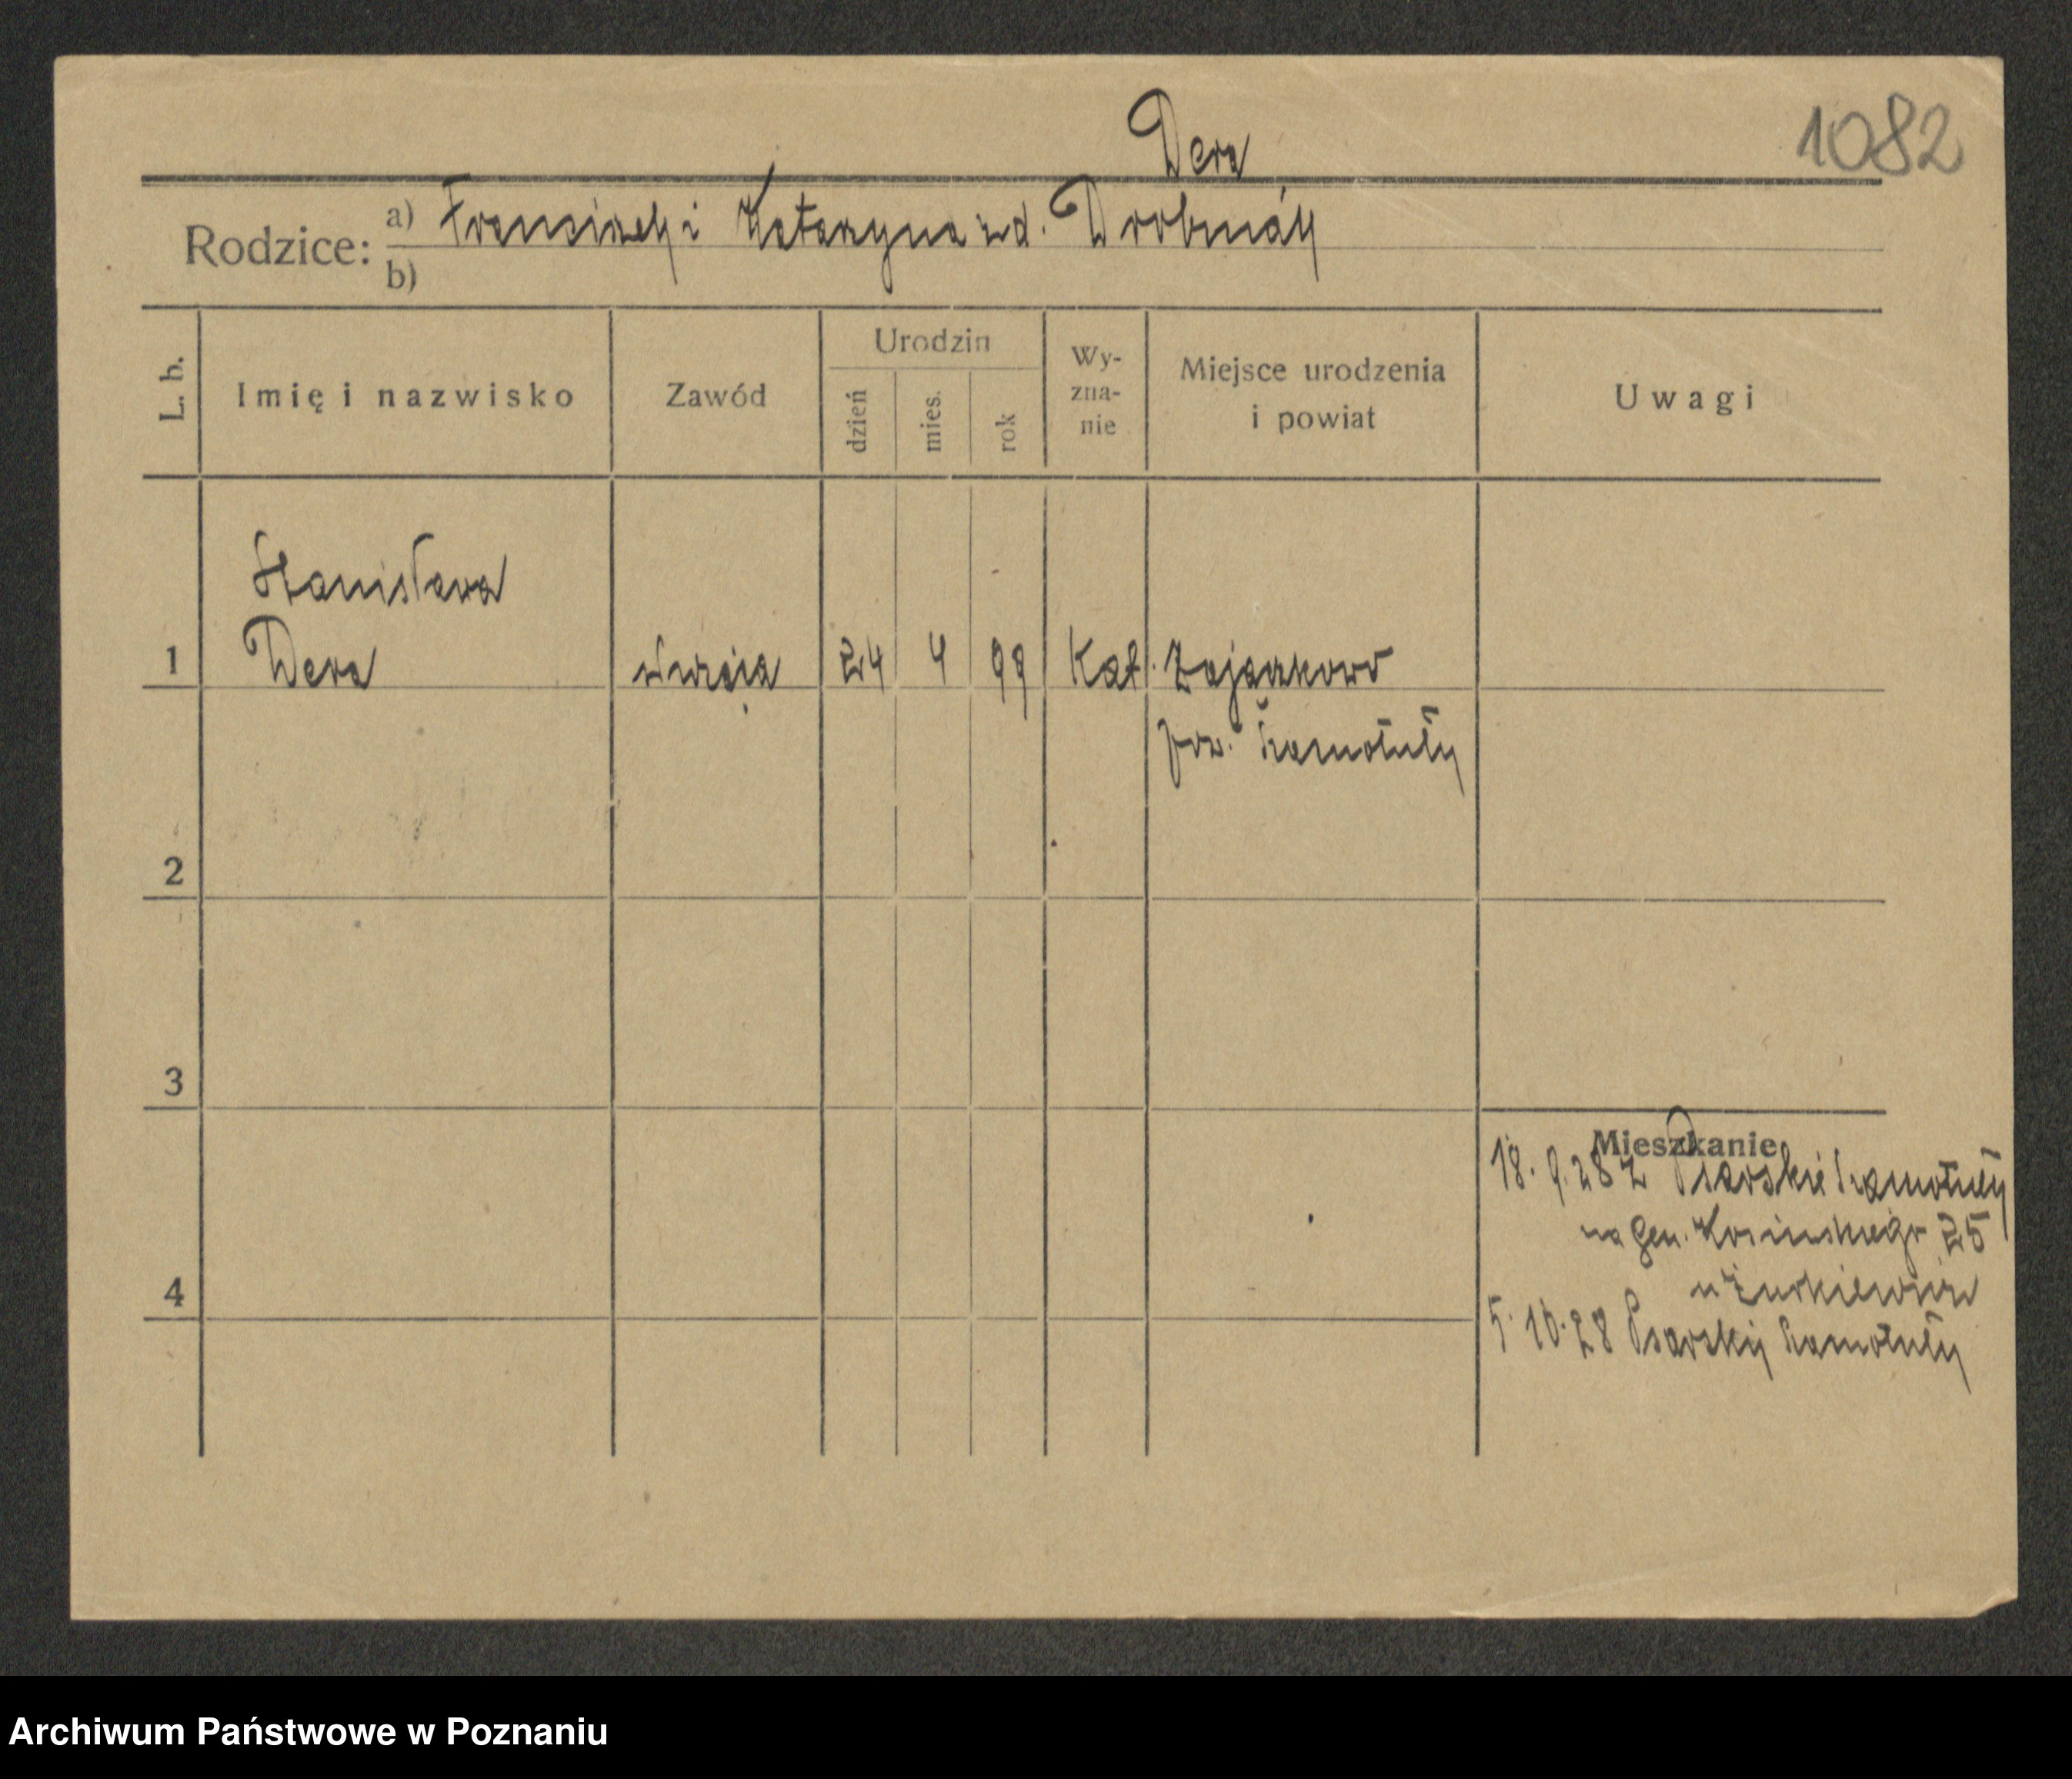 Dera
1082
Rodzice: a) Franciszek i Katarzyna zd. Drobnik
b)
L. b.
Imię i nazwisko
Zawód
Urodzin
dzień
mies.
rok
Wy-
zna-
nie
Miejsce urodzenia
i powiat
Uwagi
Stanisława
1 Dera 24 4 99 Kat. Zajączkowo
pow. Szamotuły
2
3
Mieszkanie
18. 9. 28 z Psarskie Szamotuły
na Gen. Kosińskiego 25
u Żurkiewicz
4
5. 10. 28 Psarskij Szamotuły
Archiwum Państwowe w Poznaniu